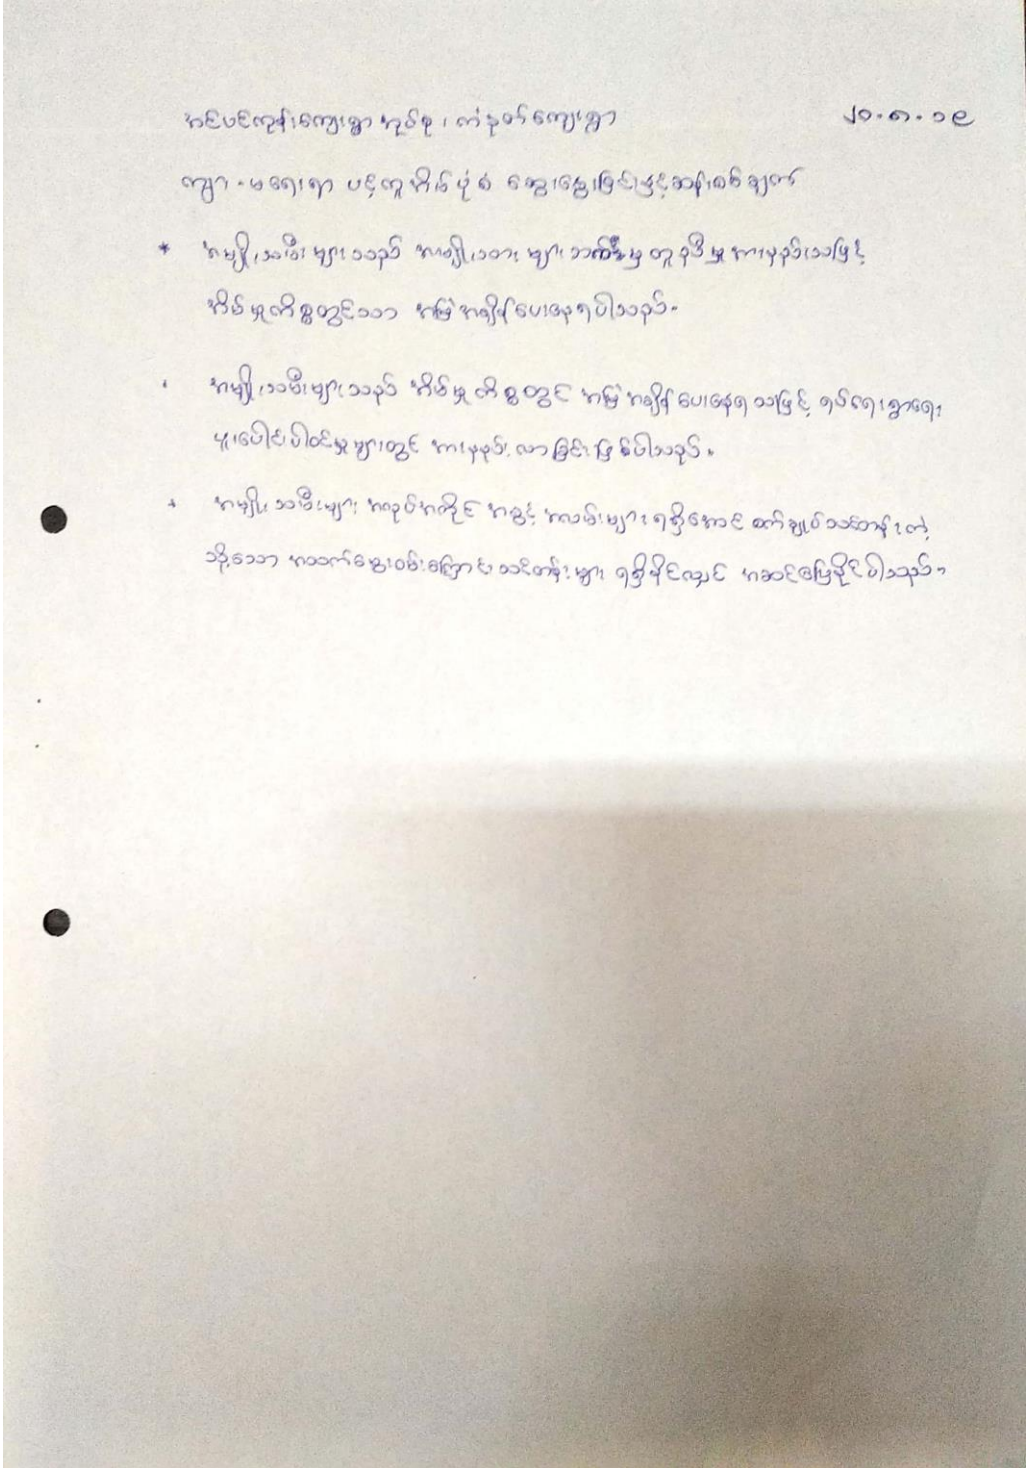 အင်ပင်ကုန်းကျေးရွာအုပ်စု၊ ကံညွတ်ကျေးရွာ ၂၀.၈.၁၉
ကျား - မရေးရာ ပင့်ကူအိမ်ပုံစံ ဆွေးနွေးခြင်းနှင့်ဆန်းစစ်ချက်
* အမျိုးသမီးများသည် အမျိုးသား များ ဘက်မှ ကူညီမှု အားနည်းသဖြင့်
အိမ်မှုကိစ္စတွင်သာ အမြဲအချိန်ပေးနေရပါသည်။
အမျိုးသမီးများသည် အိမ်မှုကိစ္စတွင် အမြဲအချိန်ပေးနေရသဖြင့် ရပ်ရေးရွာရေး
ပူးပေါင်းပါဝင်မှုများတွင် အားနည်းလာခြင်းဖြစ်ပါသည်။
* အမျိုးသမီးများ အလုပ်အကိုင် အခွင့်အလမ်းများ ရရှိအောင် စက်ချုပ်သင်တန်းကဲ့
သို့သော အသက်မွေးဝမ်းကြောင်းသင်တန်းများ ရရှိနိုင်လျှင် အဆင်ပြေနိုင်ပါသည်။